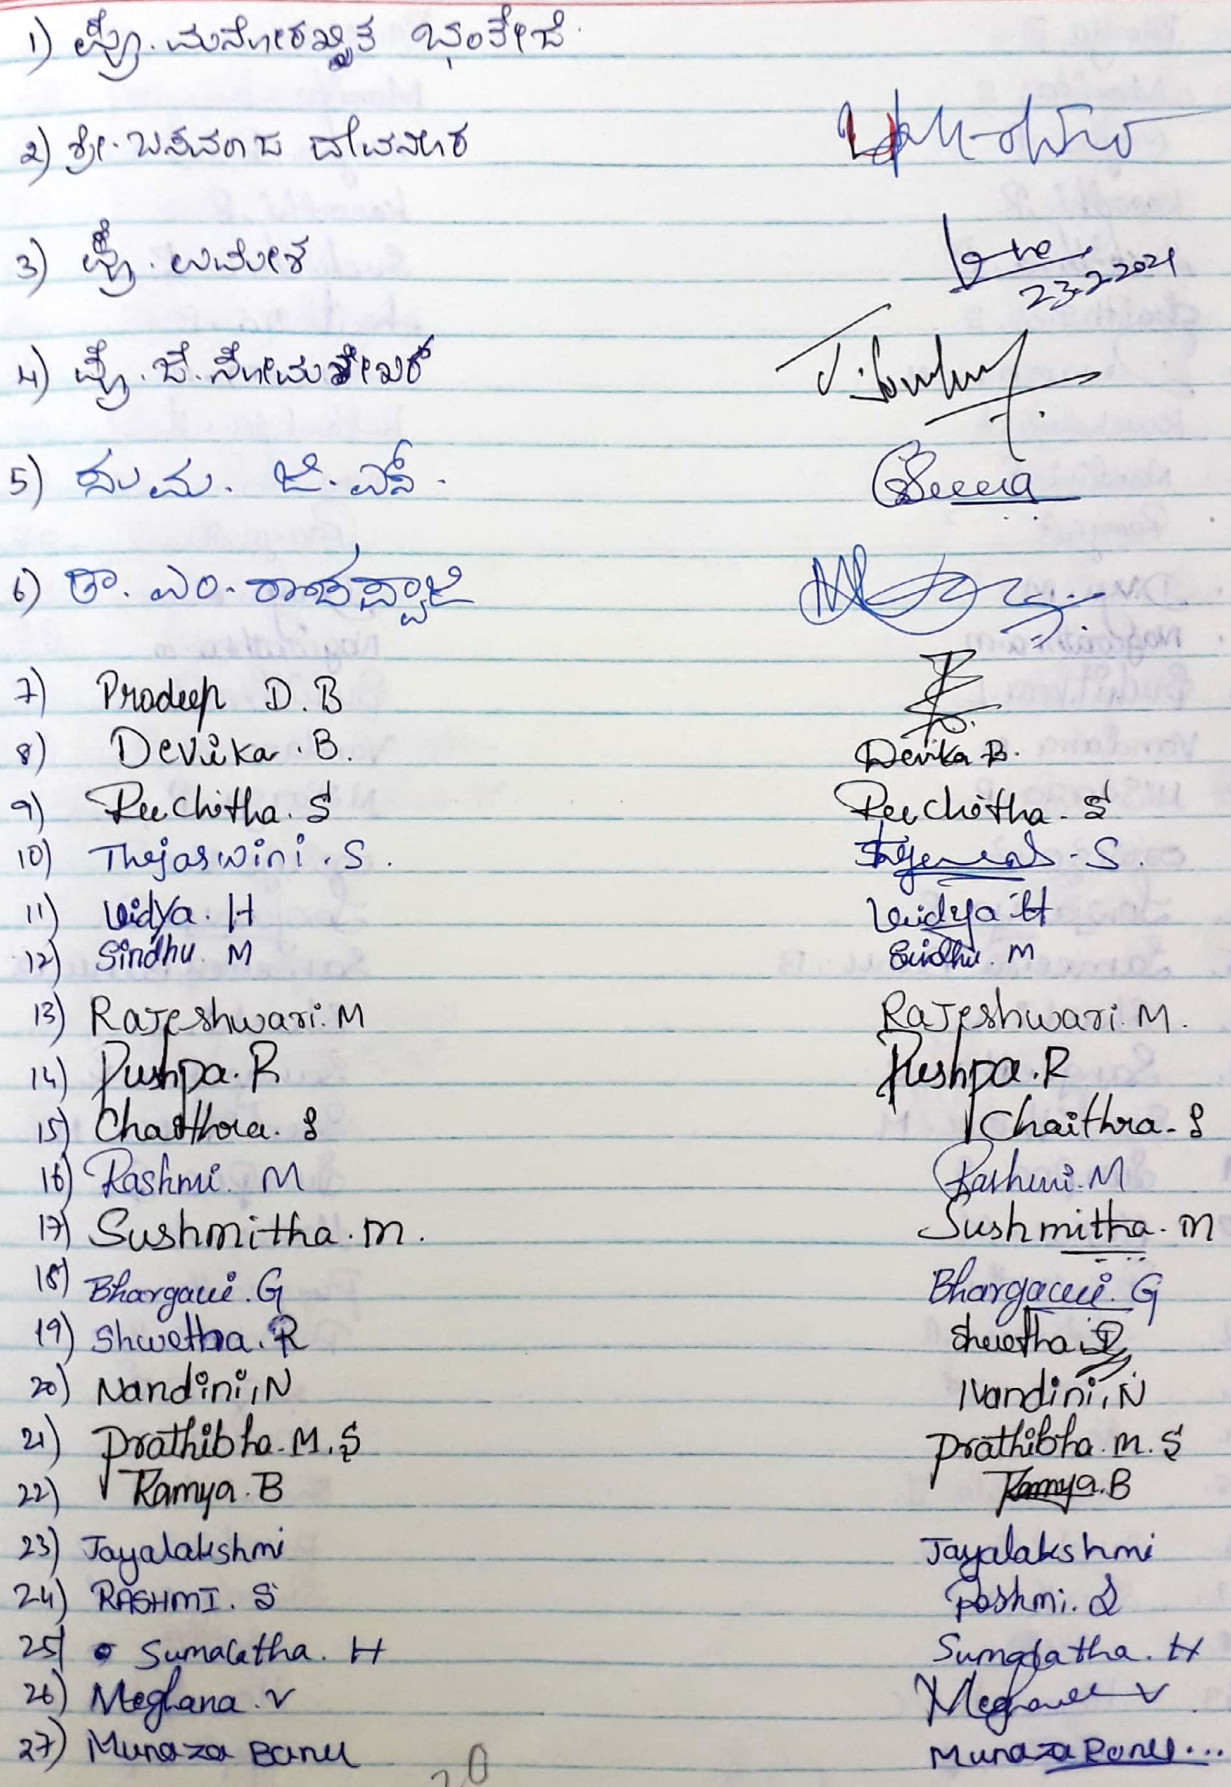 1) ಪ್ರೊ. ಮನೋರಖ್ಖಿತ ಭಂತೇಜಿ
2) ಶ್ರೀ. ಬಸವರಾಜ ದೇವನೂರ
3) ಪ್ರೊ. ಉಮೇಶ 23-2-2021
4) ಪ್ರೊ. ಜೆ. ಸೋಮಶೇಖರ್
5) ಸುಮ. ಜಿ. ಎಸ್.
6) ಡಾ. ಎಂ. ರಾಚಪ್ಪಾಜಿ
7) Pradeep D.B
8) Devika.B. Devika B.
9) Ruchitha.S Ruchitha.S
10) Thejaswini.S.
11) Vidya.H Vidya H
12) Sindhu M Sindhu. M
13) Rajeshwari.M Rajeshwari.M.
14) Pushpa.R Pushpa.R
15) Chaithra.S Chaithra.S
16) Rashmi. M Rashmi.M
17) Sushmitha.m. Sushmitha.m
18) Bhargavi.G Bhargavi.G
19) Shwetha.R Shwetha.R
20) Nandini,N Nandini,N
21) Prathibha.M.S Prathibha.m.S
22) Ramya.B Ramya.B
23) Jayalakshmi Jayalakshmi
24) RASHMI. S Rashmi.S
25) Sumalatha. H Sumalatha. H
26) Meghana.V Meghana V
27) Munaza Banu Munaza Banu...
20